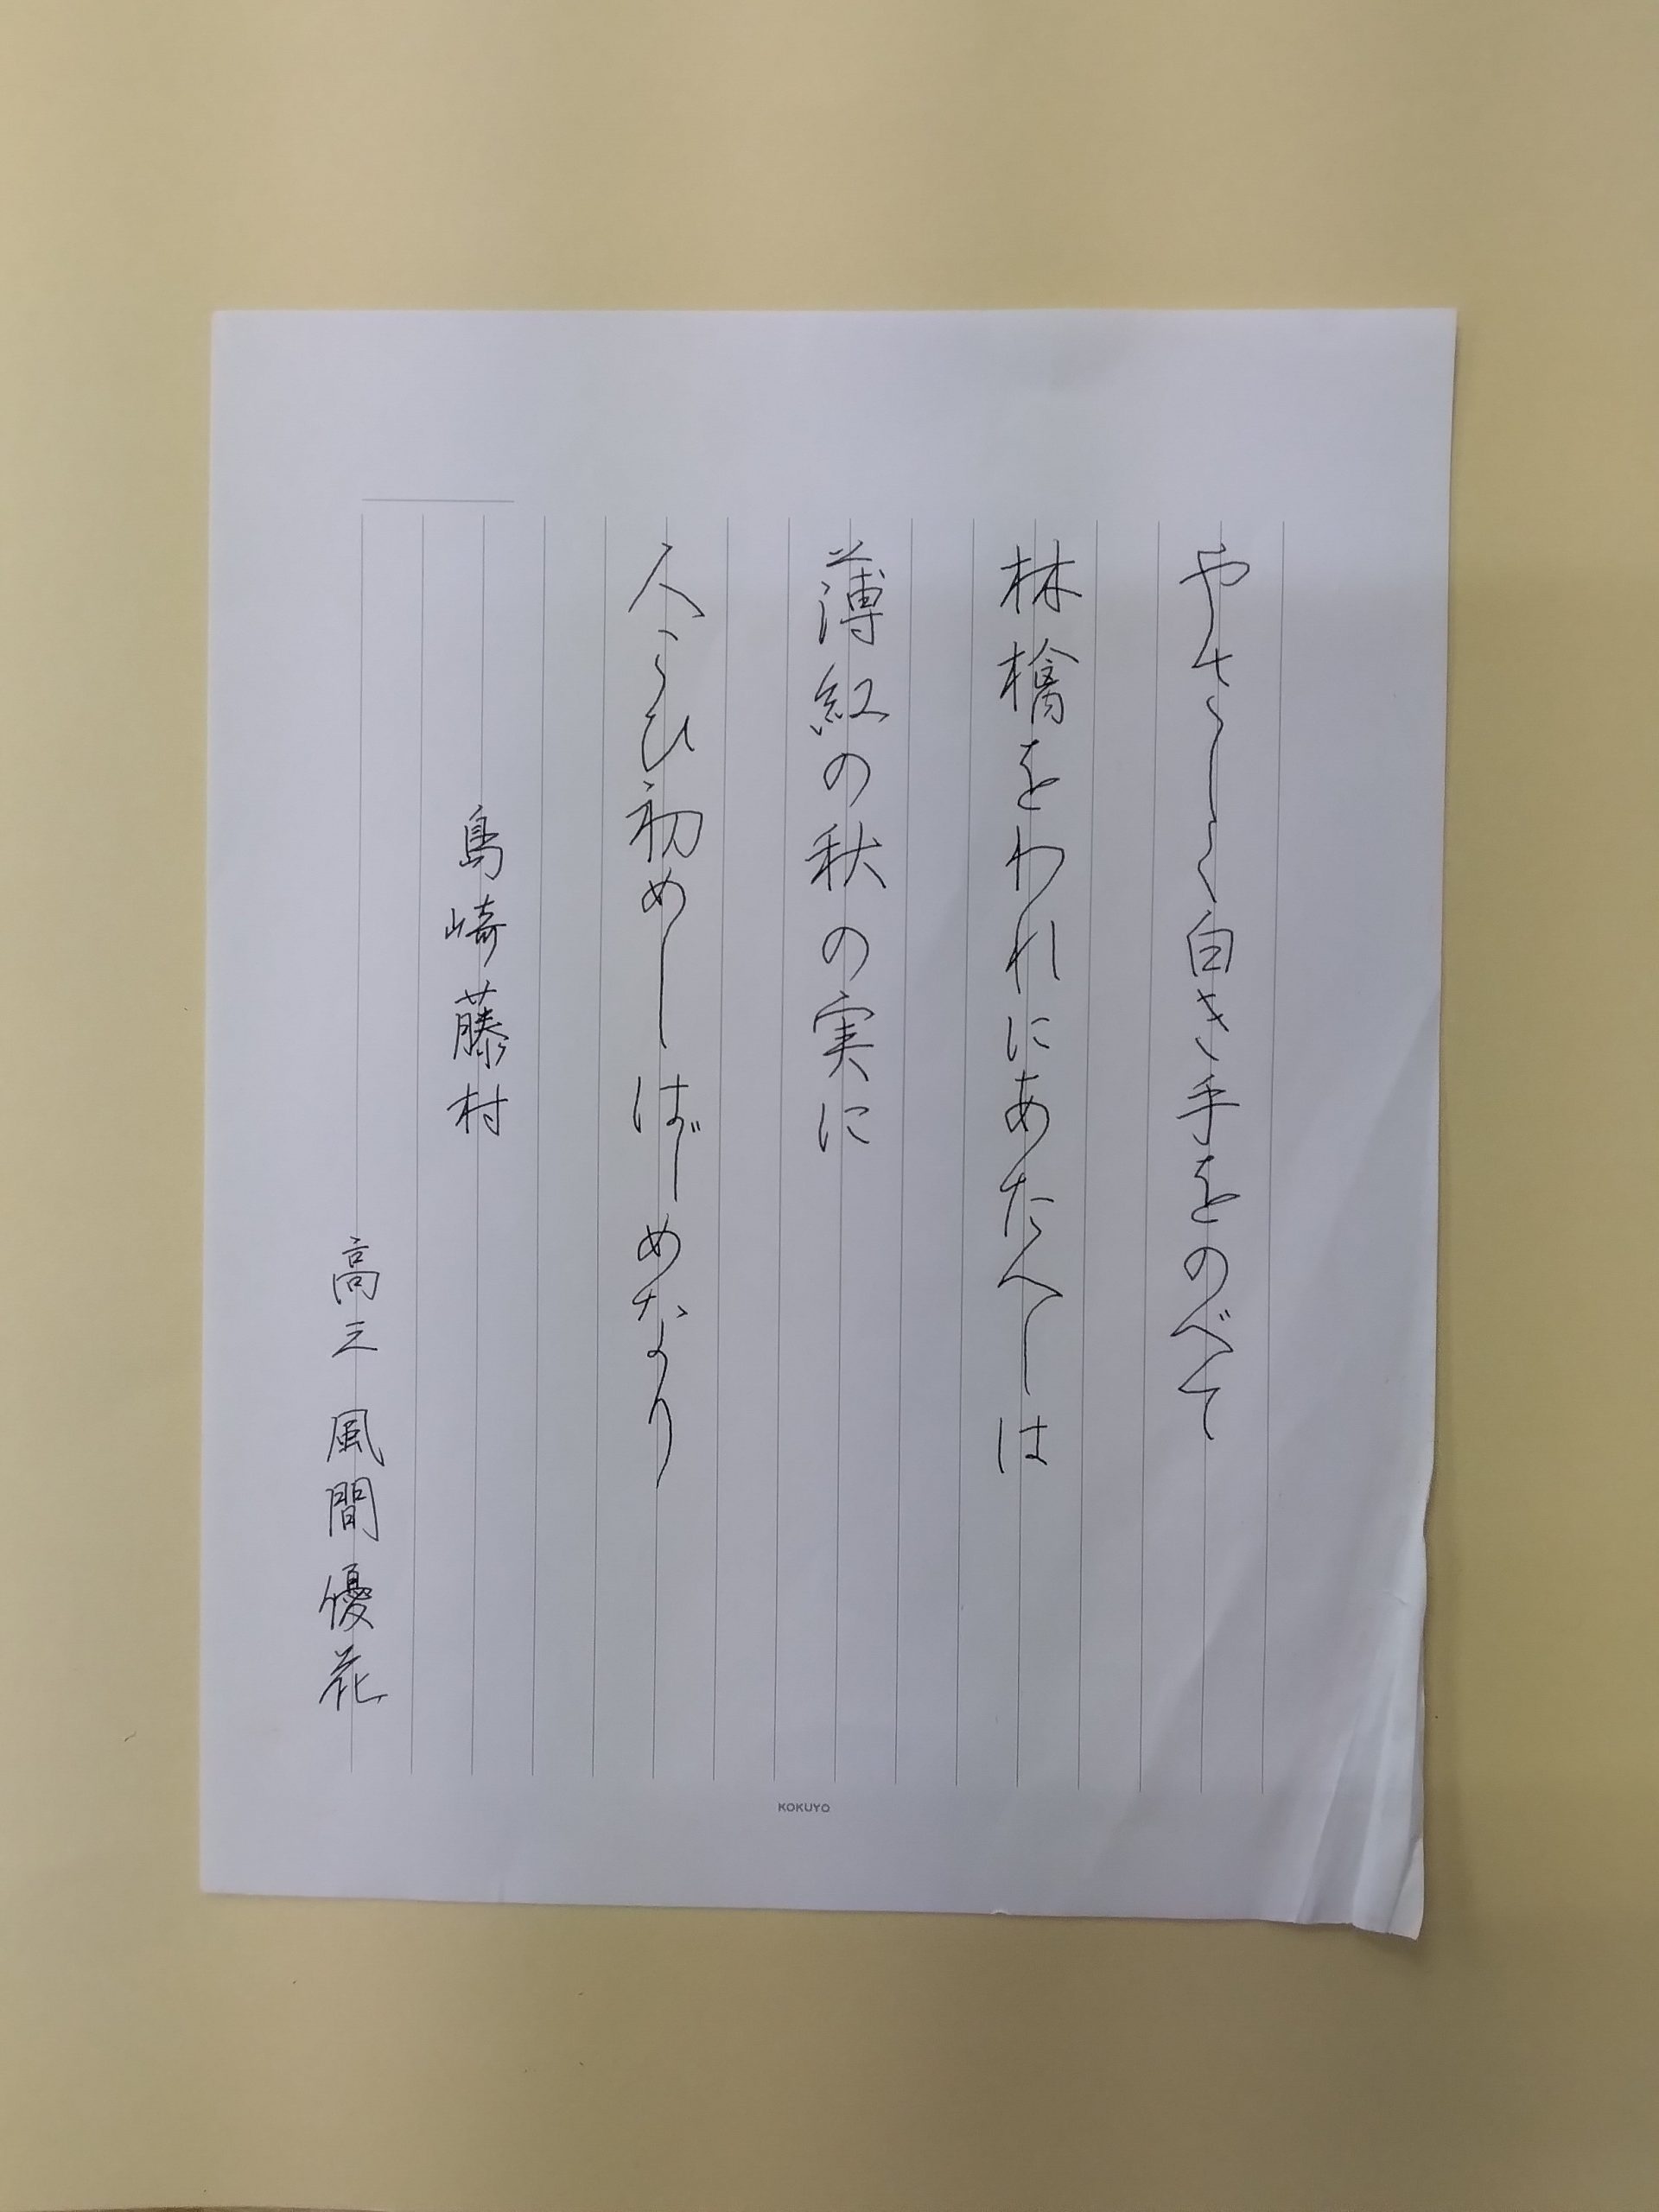 やさしく白き手をのべて
林檎をわれにあたへしは
薄紅の秋の実に
人こひ初めしはじめなり
島崎藤村
高三 風間優花
KOKUYO